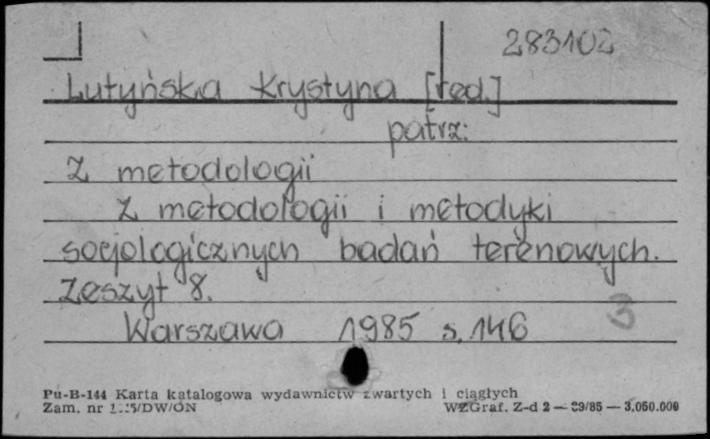 283102
Lutyńska Krystyna [red.]
patrz:
Z metodologii
Z metodologii i metodyki
socjologicznych badań terenowych.
Zeszyt 8.
Warszawa 1985 s. 146
3
Pu-B-144 Karta katalogowa wydawnictw zwartych i ciągłych
Zam. nr WZGraf. Z-d 2 — 89/85 — 3.050.000